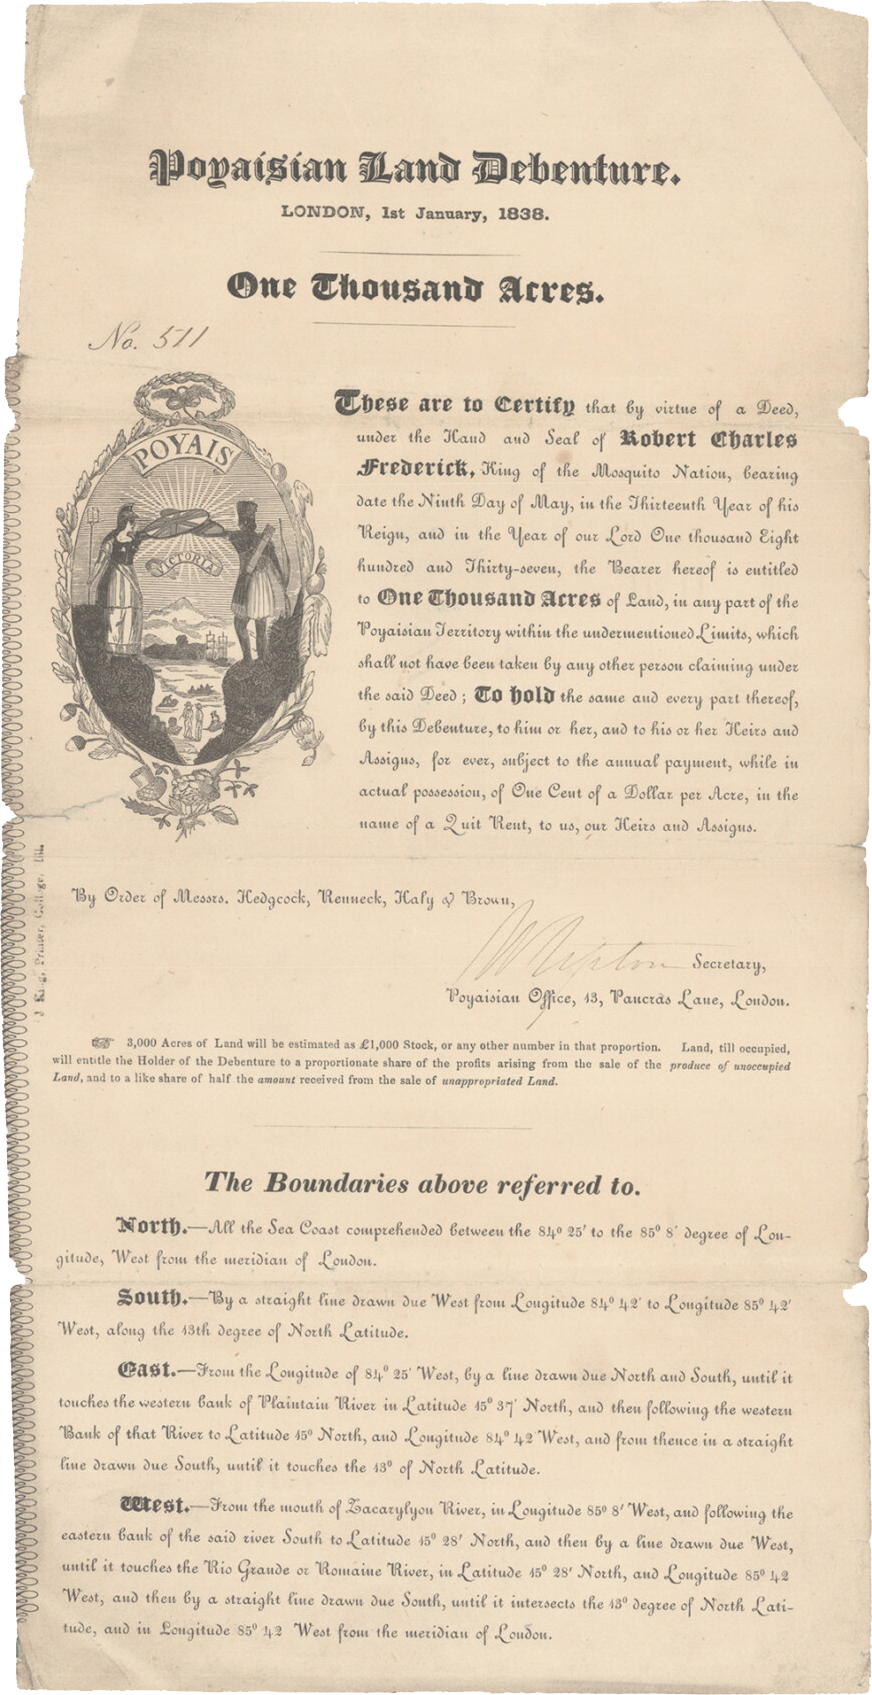 Poyaisian Land Debenture.
LONDON, 1st January, 1838.
One Thousand Acres.
No. 511
POYAIS
VICTORIA
These are to Certify that by virtue of a Deed,
under the Hand and Seal of Robert Charles
Frederick, King of the Mosquito Nation, bearing
date the Ninth Day of May, in the Thirteenth Year of his
Reign, and in the Year of our Lord One thousand Eight
hundred and Thirty-seven, the Bearer hereof is entitled
to One Thousand Acres of Land, in any part of the
Poyaisian Territory within the undermentioned Limits, which
shall not have been taken by any other person claiming under
the said Deed; To hold the same and every part thereof,
by this Debenture, to him or her, and to his or her Heirs and
Assigns, for ever, subject to the annual payment, while in
actual possession, of One Cent of a Dollar per Acre, in the
name of a Quit Rent, to us, our Heirs and Assigns.
J. King, Printer, College Hill
By Order of Messrs. Hedgcock, Renneck, Haly & Brown,
Secretary,
Poyaisian Office, 13, Pancras Lane, London.
☞ 3,000 Acres of Land will be estimated as £1,000 Stock, or any other number in that proportion. Land, till occupied,
will entitle the Holder of the Debenture to a proportionate share of the profits arising from the sale of the produce of unoccupied
Land, and to a like share of half the amount received from the sale of unappropriated Land.
The Boundaries above referred to.
North.—All the Sea Coast comprehended between the 84º 25′ to the 85º 8′ degree of Lon-
gitude, West from the meridian of London.
South.—By a straight line drawn due West from Longitude 84º 42′ to Longitude 85º 42′
West, along the 13th degree of North Latitude.
East.—From the Longitude of 84º 25′ West, by a line drawn due North and South, until it
touches the western bank of Plaintain River in Latitude 15º 37′ North, and then following the western
Bank of that River to Latitude 15º North, and Longitude 84º 42′ West, and from thence in a straight
line drawn due South, until it touches the 13º of North Latitude.
West.—From the mouth of Zacarylyon River, in Longitude 85º 8′ West, and following the
eastern bank of the said river South to Latitude 15º 28′ North, and then by a line drawn due West,
until it touches the Rio Grande or Romaine River, in Latitude 15º 28′ North, and Longitude 85º 42
West, and then by a straight line drawn due South, until it intersects the 13º degree of North Lati-
tude, and in Longitude 85º 42 West from the meridian of London.